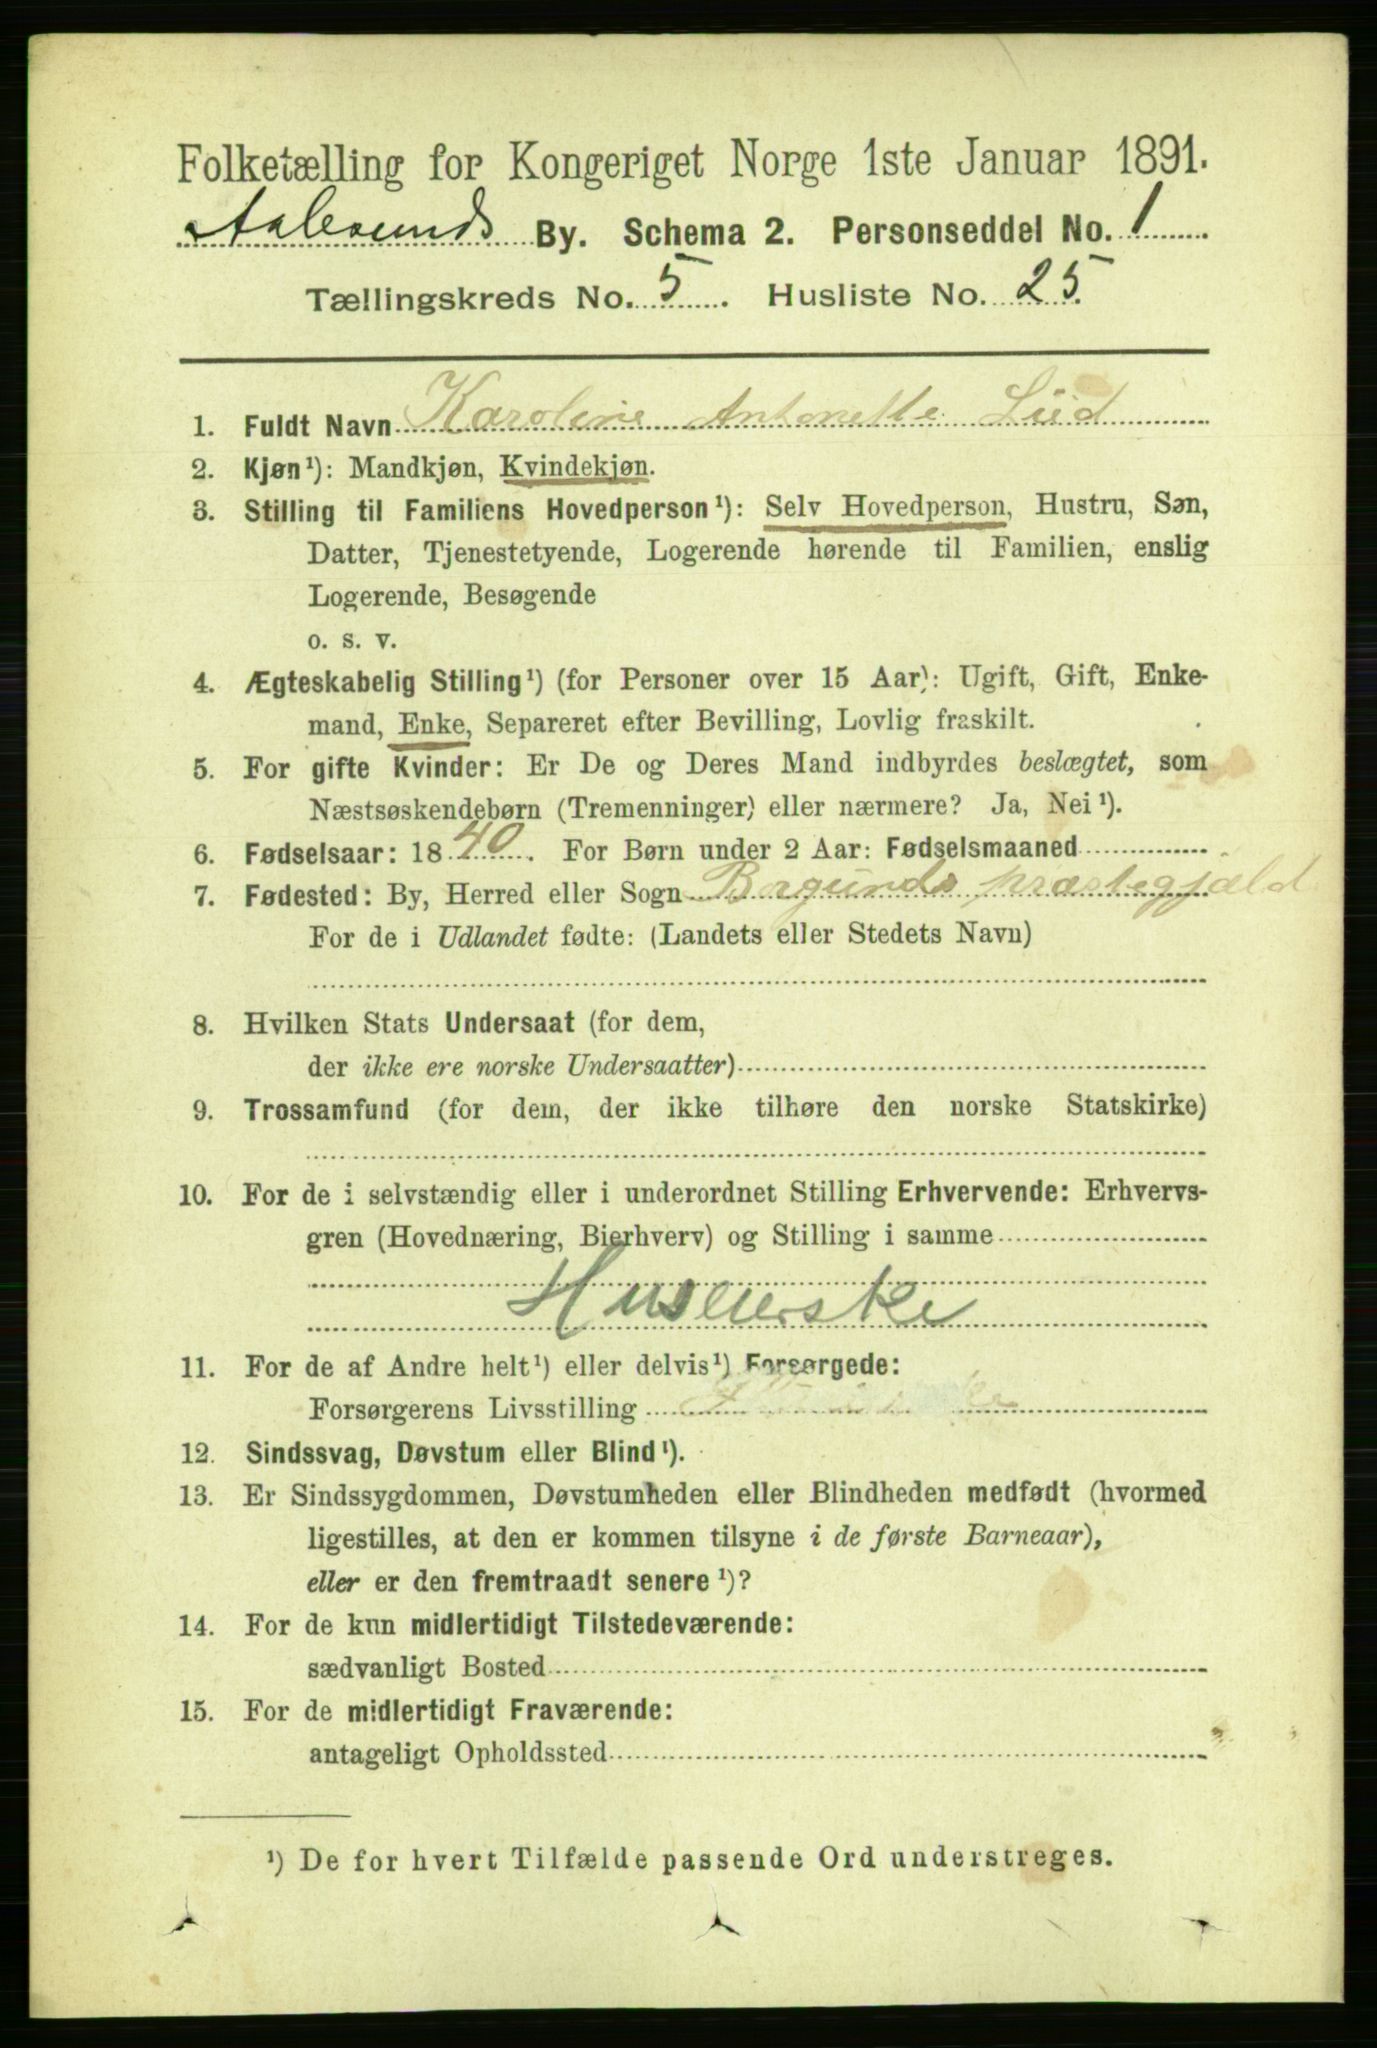 Folketælling for Kongeriget Norge 1ste Januar 1891.
Aalesunds By. Schema 2. Personseddel No. 1
Tællingskreds No. 5. Husliste No. 25.
1. Fuldt Navn Karoline Antonette Liid
2. Kjøn¹): Mandkjøn, Kvindekjøn.
3. Stilling til Familiens Hovedperson¹): Selv Hovedperson, Hustru, Søn,
Datter, Tjenestetyende, Logerende hørende til Familien, enslig
Logerende, Besøgende
o. s. v.
4. Ægteskabelig Stilling¹) (for Personer over 15 Aar): Ugift, Gift, Enke-
mand, Enke, Separeret efter Bevilling, Lovlig fraskilt.
5. For gifte Kvinder: Er De og Deres Mand indbyrdes beslægtet, som
Næstsøskendebørn (Tremenninger) eller nærmere? Ja, Nei¹).
6. Fødselsaar: 1840. For Børn under 2 Aar: Fødselsmaaned
7. Fødested: By, Herred eller Sogn Borgunds præstegjæld
For de i Udlandet fødte: (Landets eller Stedets Navn)
8. Hvilken Stats Undersaat (for dem,
der ikke ere norske Undersaatter)
9. Trossamfund (for dem, der ikke tilhøre den norske Statskirke)
10. For de i selvstændig eller i underordnet Stilling Erhvervende: Erhvervs-
gren (Hovednæring, Bierhverv) og Stilling i samme
Huseierske
11. For de af Andre helt¹) eller delvis¹) Forsørgede:
Forsørgerens Livsstilling
12. Sindssvag, Døvstum eller Blind¹).
13. Er Sindssygdommen, Døvstumheden eller Blindheden medfødt (hvormed
ligestilles, at den er kommen tilsyne i de første Barneaar),
eller er den fremtraadt senere¹)?
14. For de kun midlertidigt Tilstedeværende:
sædvanligt Bosted
15. For de midlertidigt Fraværende:
antageligt Opholdssted
¹) De for hvert Tilfælde passende Ord understreges.